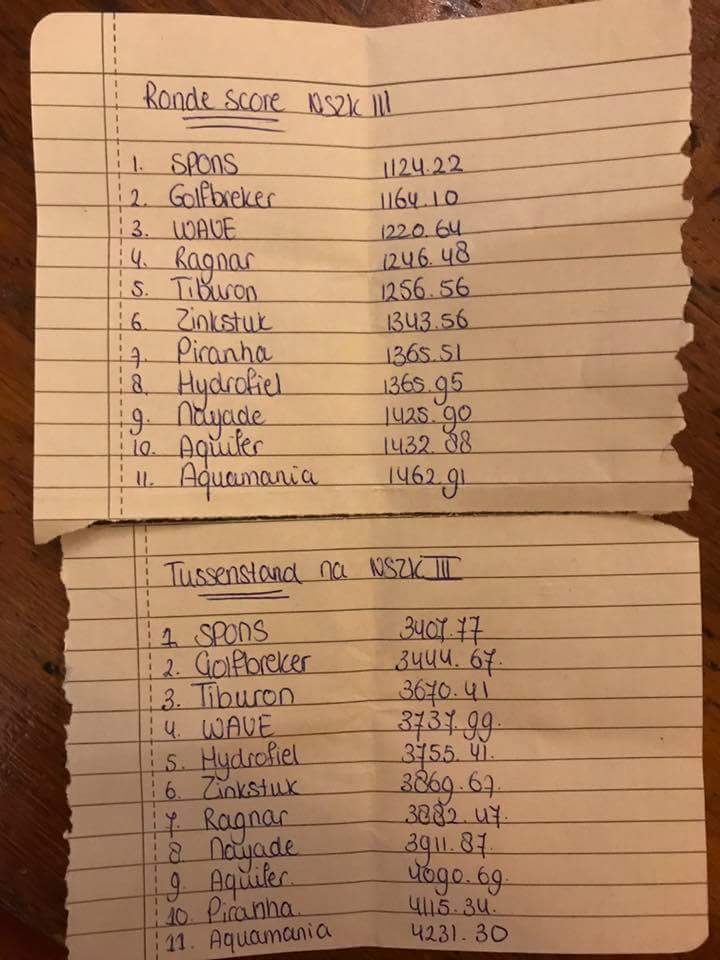 Ronde score NSZK III
1. SPONS 1124.22
2. Golfbreker 1164.10
3. WAVE 1220.64
4. Ragnar 1246.48
5. Tiburon 1256.56
6. Zinkstuk 1343.56
7. Piranha 1365.51
8. Hydrofiel 1365.95
9. Nayade 1425.90
10. Aquifer 1432.88
11. Aquamania 1462.91
Tussenstand na NSZK III
1. SPONS 3407.77
2. Golfbreker 3444.67.
3. Tiburon 3670.41
4. WAVE 3737.99.
5. Hydrofiel 3755.41.
6. Zinkstuk 3869.67.
7. Ragnar 3882.47.
8. Nayade 3911.87.
9. Aquifer. 4090.69.
10. Piranha. 4115.34.
11. Aquamania 4231.30